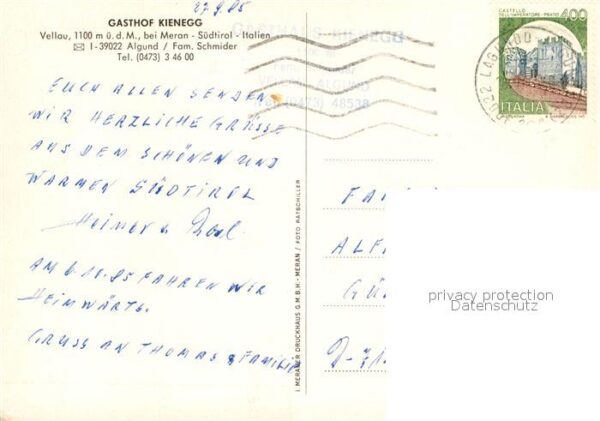 27.9.85
GASTHOF KIENEGG
Vellau, 1100 m ü. d. M., bei Meran - Südtirol - Italien
✉ I-39022 Algund / Fam. Schmider
Tel. (0473) 3 46 00
EUCH ALLEN SENDEN
WIR HERZLICHE GRÜSSE
AUS DEM SCHÖNEN UND
WARMEN SÜDTIROL
HEINER u.
AM 6.10.85 FAHREN WIR
HEIMWÄRTS.
GRUSS AN THOMAS & FAMILIE
I. MERANER DRUCKHAUS G.M.B.H. - MERAN / FOTO RATSCHILLER
GASTHAUS KIENEGG
Tel. (0473) 48538
CASTELLO
DELL'IMPERATORE - PRATO
400
ITALIA
FA
ALF
GÜ
D-71
privacy protection
Datenschutz